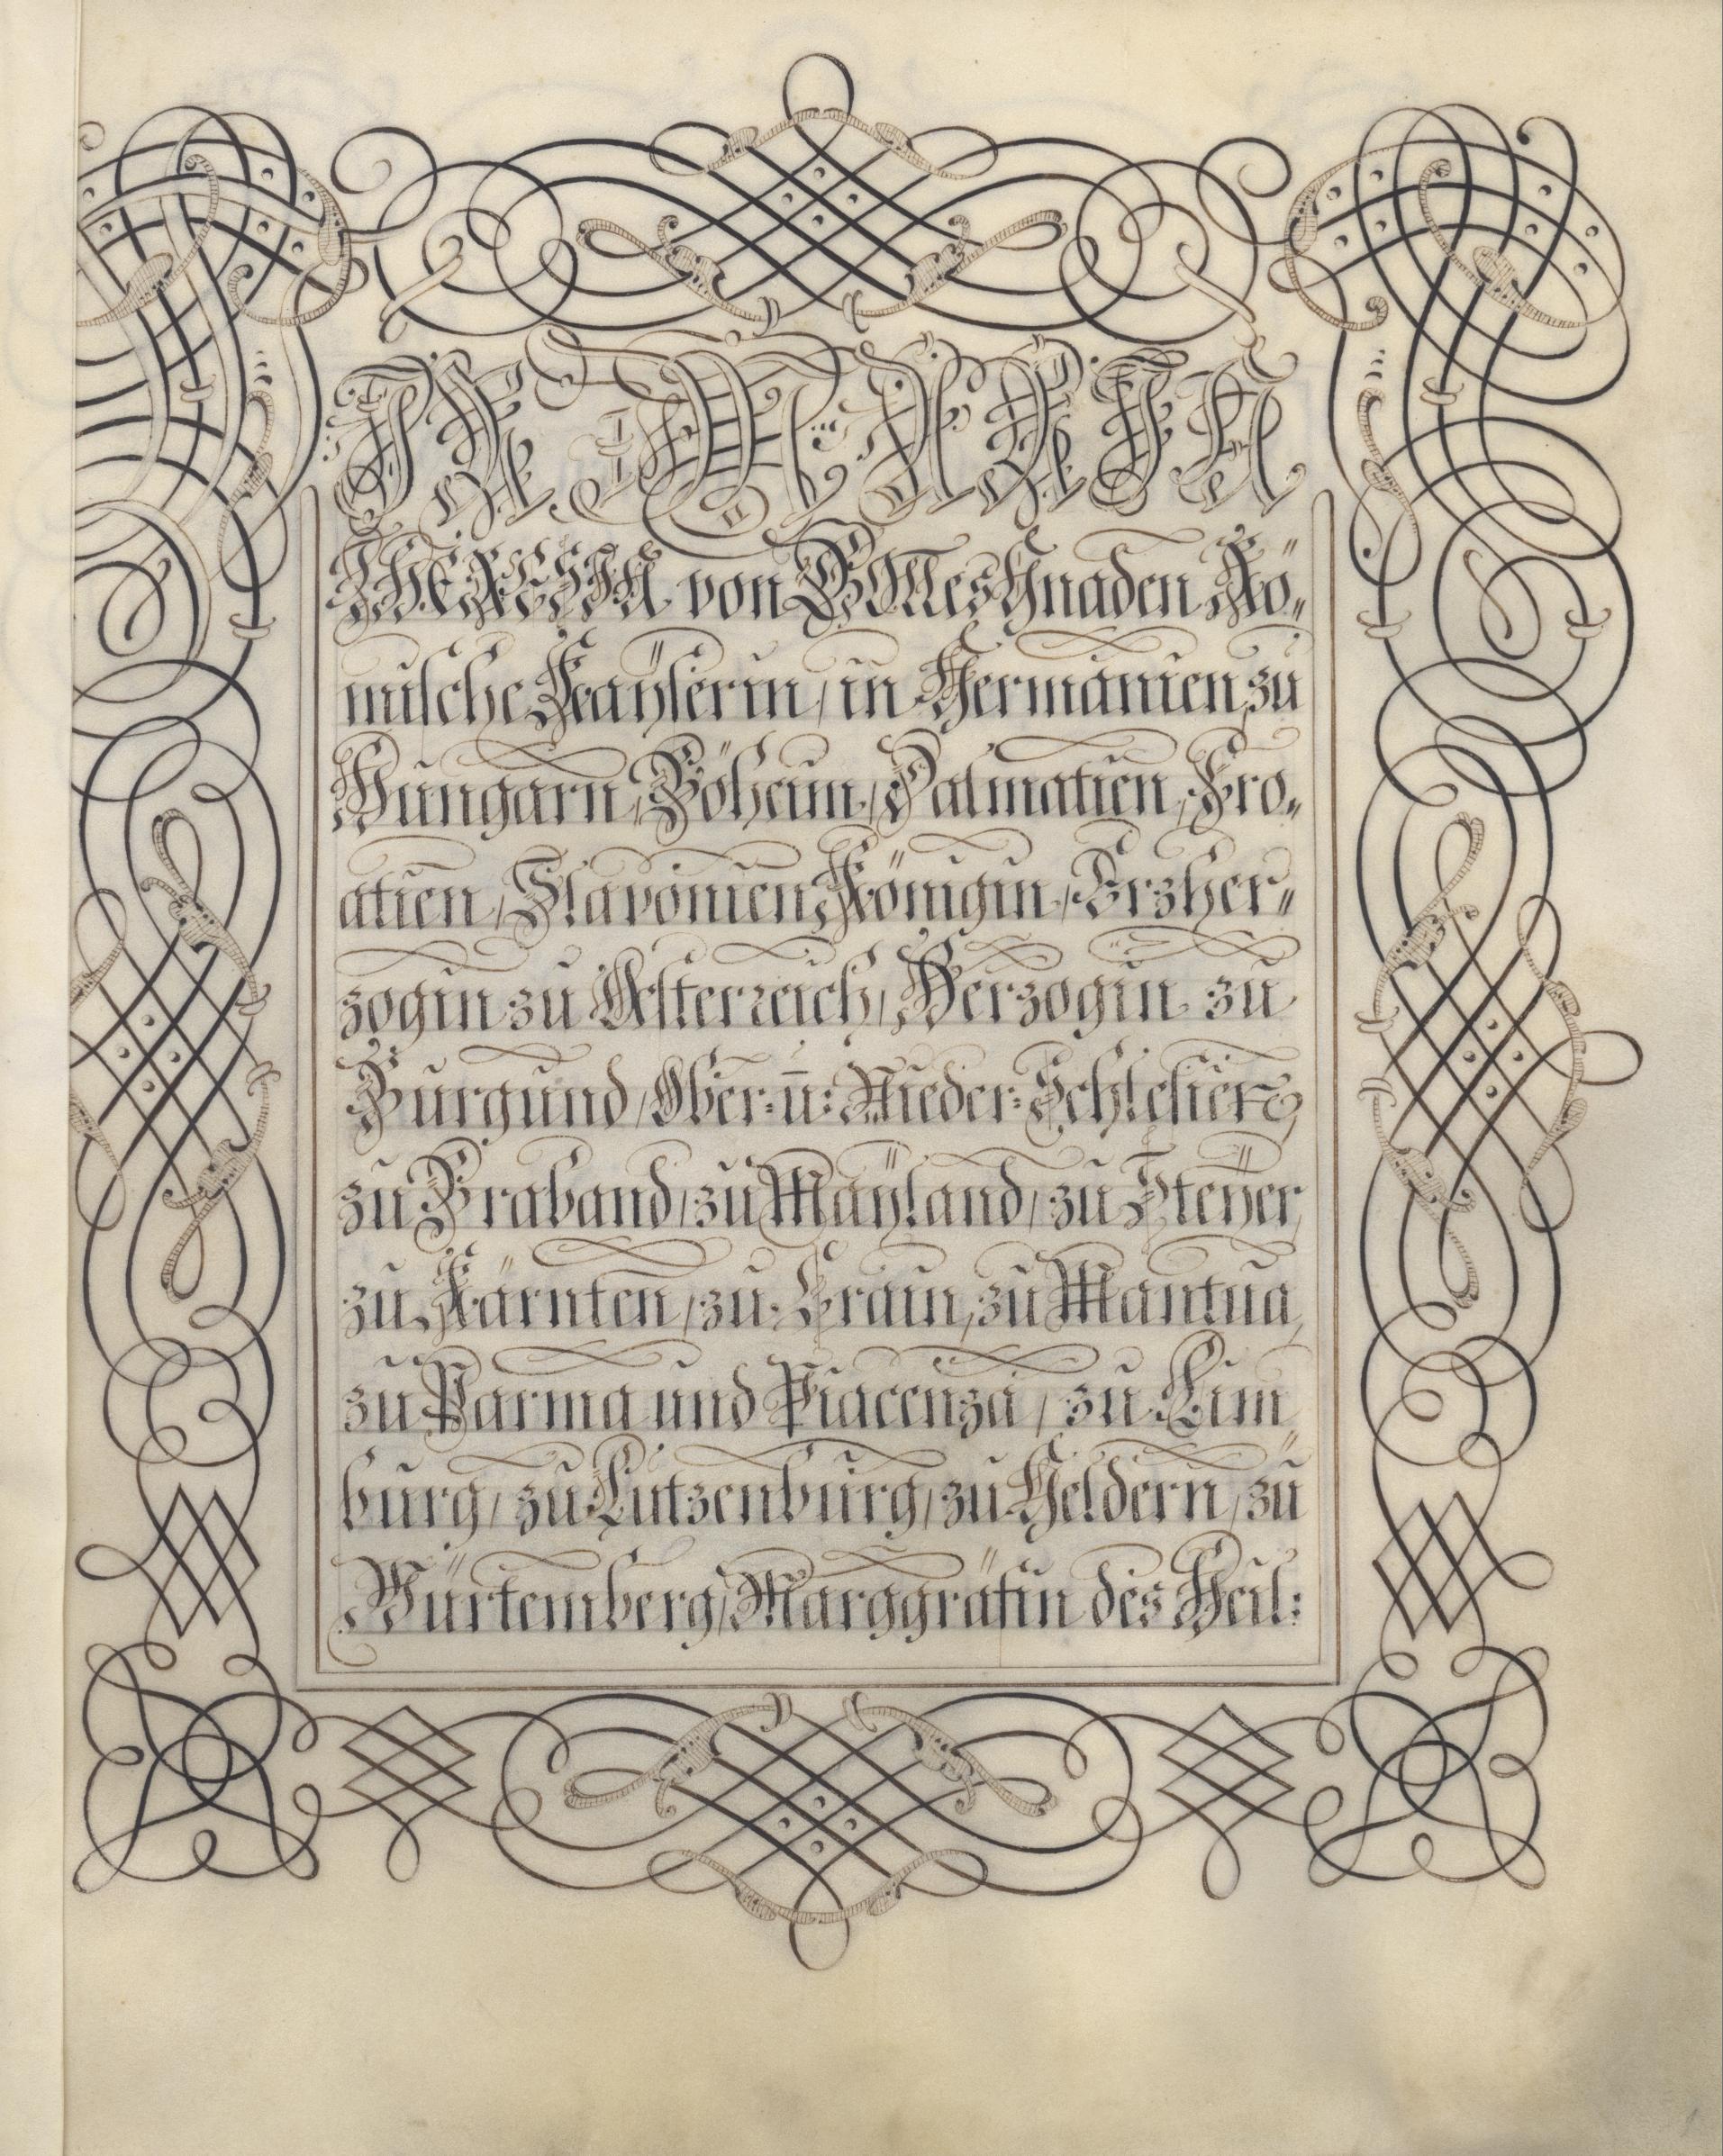 WIR MARIA
THERESIA von GOttes Gnaden Rö„
mische Kaÿserin, in Germanien, zu
Hungarn, Böheim, Dalmatien, Cro„
atien, Slavonien Königin, Erzher„
zogin zu Oesterreich, Herzogin zu
Burgund, Ober: u: Nieder: Schlesien
zu Braband, zu Maÿland, zu Steÿer,
zu Kärnten, zu Crain, zu Mantua,
zu Parma und Piacenza, zu Lim
burg, zu Lutzenburg, zu Geldern, zu
Würtemberg, Marggräfin des Heil: